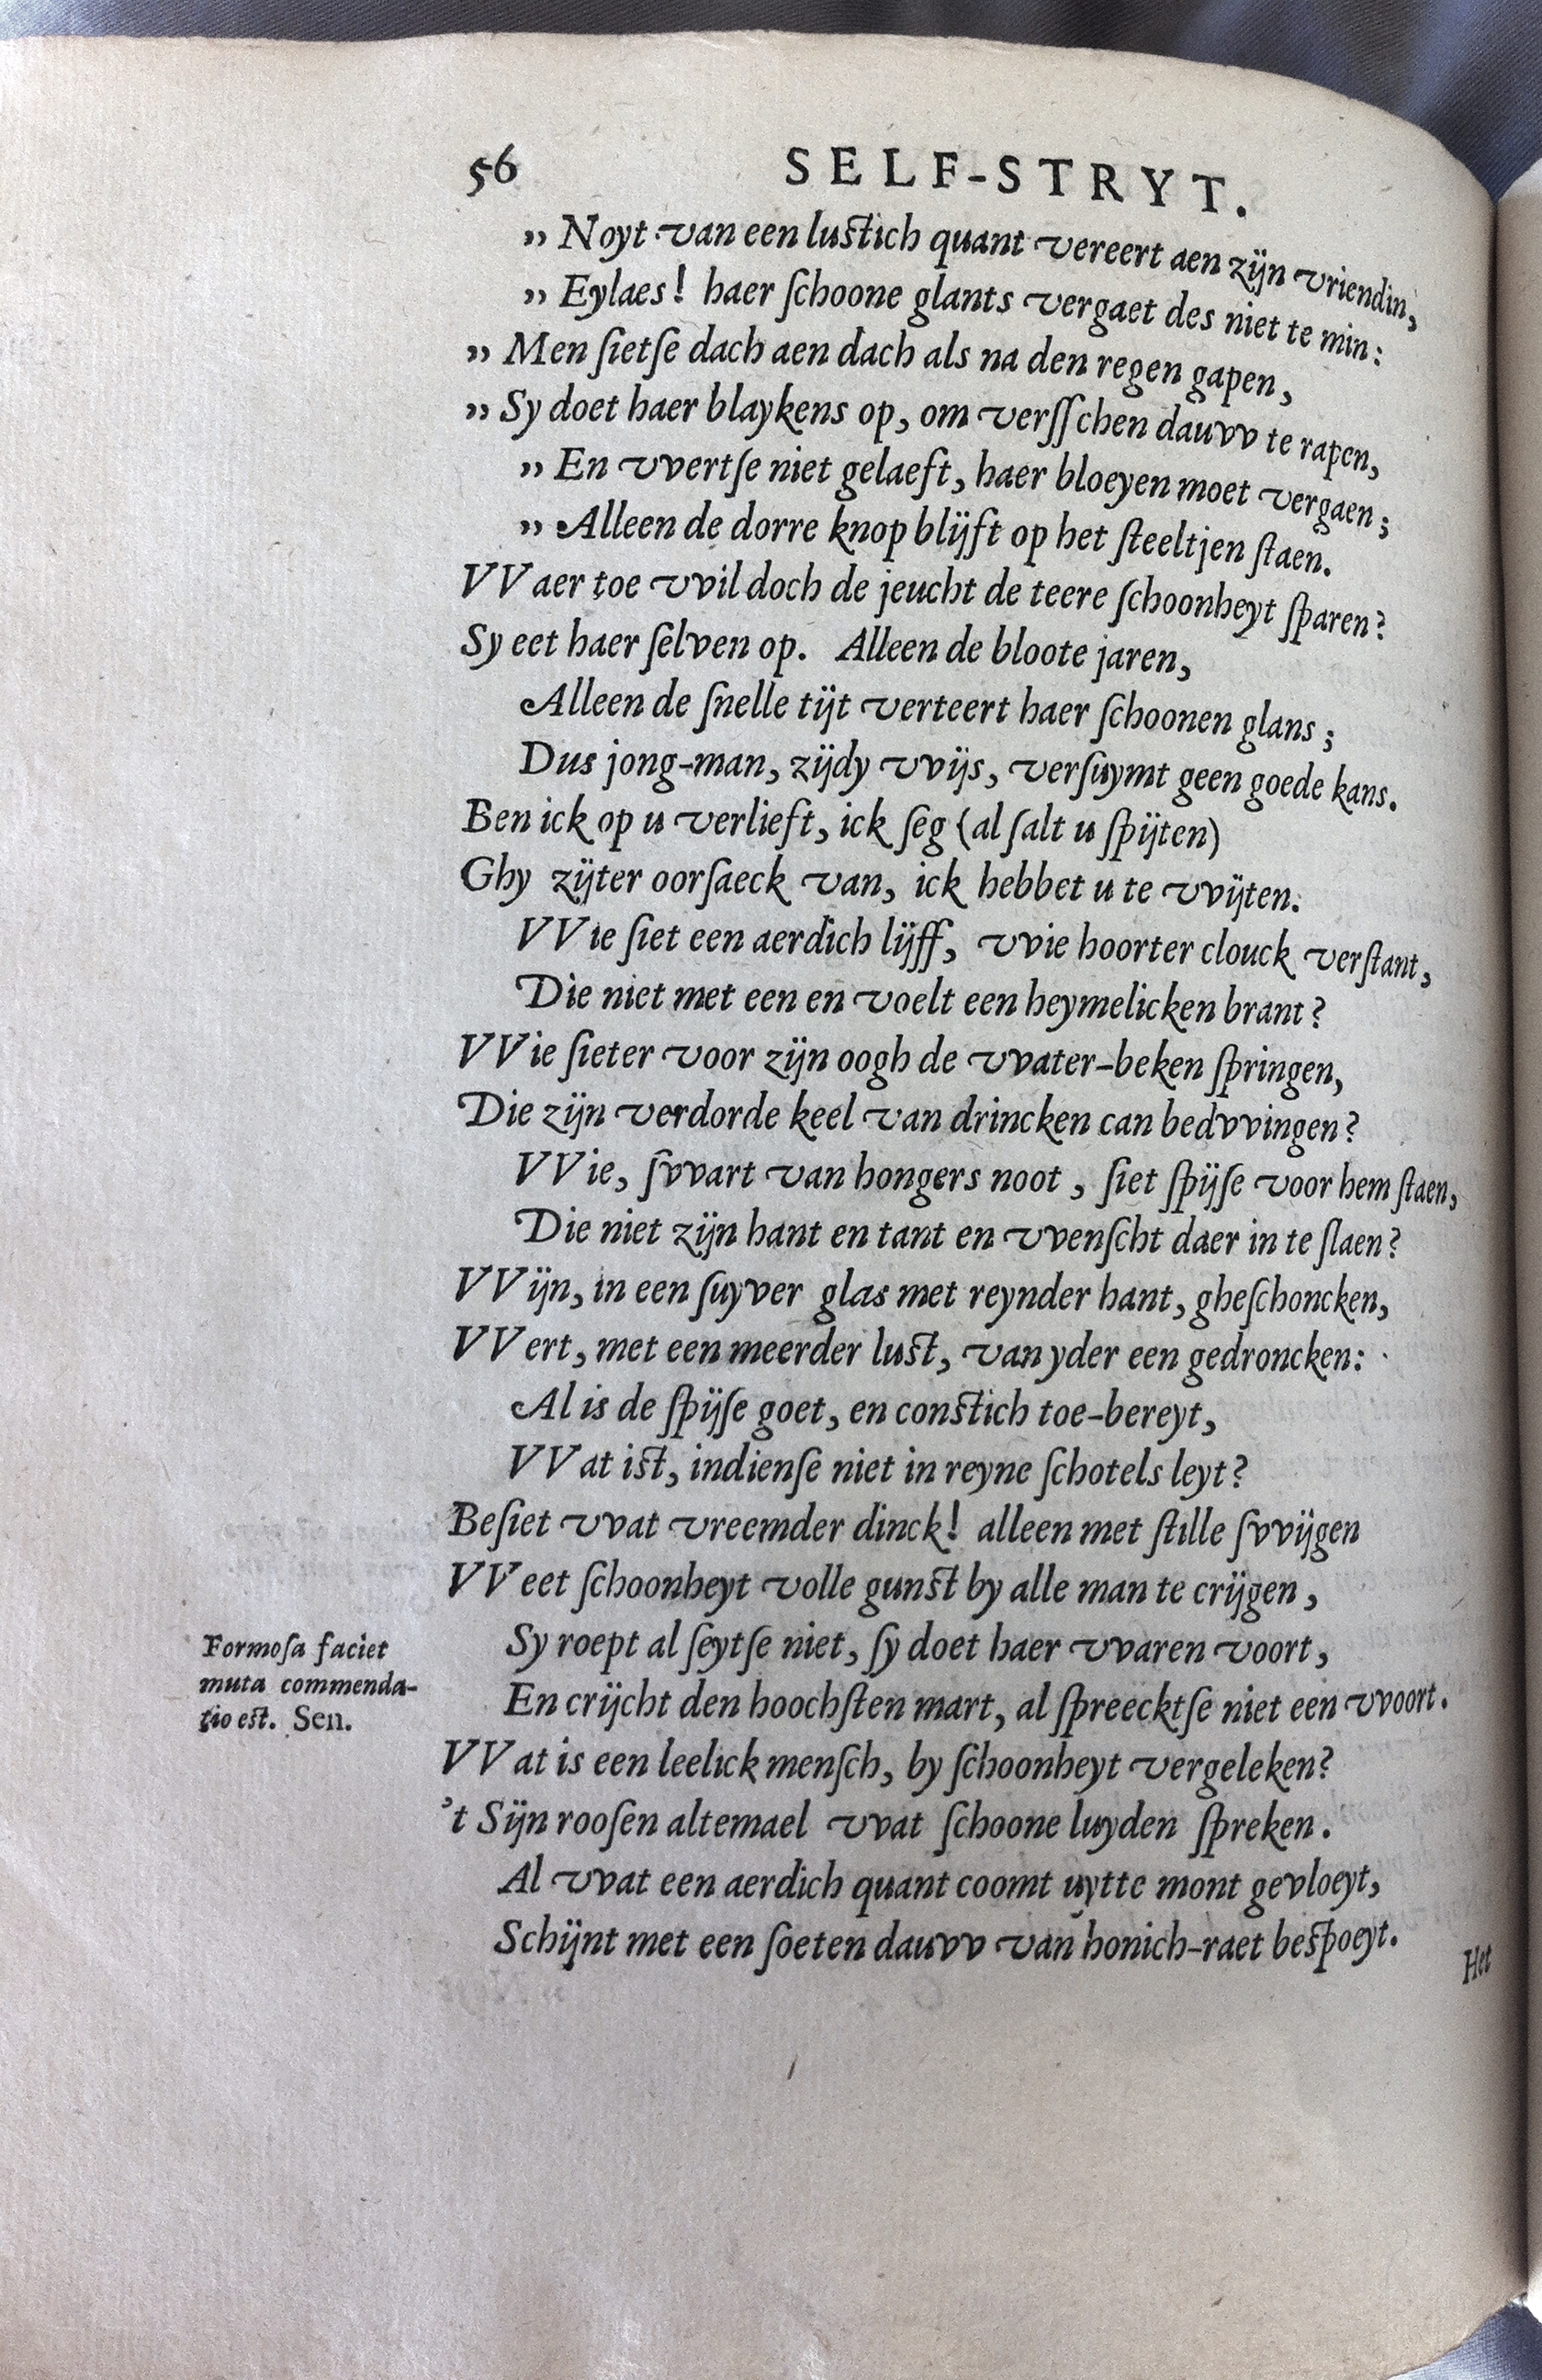 56 SELF-STRYT.
„ Noyt van een lustich quant vereert aen zijn vriendin,
„ Eylaes! haer ſchoone glants vergaet des niet te min:
„ Men ſietſe dach aen dach als na den regen gapen,
„ Sy doet haer blaykens op, om verſſchen dauvv te rapen,
„ En vvertſe niet gelaeft, haer bloeyen moet vergaen;
„ Alleen de dorre knop blijft op het ſteeltjen ſtaen.
VVaer toe vvil doch de jeucht de teere ſchoonheyt ſparen?
Sy eet haer ſelven op. Alleen de bloote jaren,
Alleen de ſnelle tijt verteert haer ſchoonen glans;
Dus jong-man, zijdy vvijs, verſuymt geen goede kans.
Ben ick op u verlieft, ick ſeg (al ſalt u ſpijten)
Ghy zijter oorſaeck van, ick hebbet u te vvijten.
VVie ſiet een aerdich lijff, vvie hoorter clouck verſtant,
Die niet met een en voelt een heymelicken brant?
VVie ſieter voor zijn oogh de vvater-beken ſpringen,
Die zijn verdorde keel van drincken can bedvvingen?
VVie, ſvvart van hongers noot, ſiet ſpijſe voor hem ſtaen,
Die niet zijn hant en tant en vvenſcht daer in te ſlaen?
VVijn, in een ſuyver glas met reynder hant, gheſchoncken,
VVert, met een meerder lust, van yder een gedroncken:
Al is de ſpijſe goet, en constich toe-bereyt,
VVat ist, indienſe niet in reyne ſchotels leyt?
Beſiet vvat vreemder dinck! alleen met ſtille ſvvijgen
VVeet ſchoonheyt volle gunst by alle man te crijgen,
Sy roept al ſeytſe niet, ſy doet haer vvaren voort,
En crijcht den hoochſten mart, al ſpreecktſe niet een vvoort.
Formoſa faciet
muta commenda-
tio est. Sen.
VVat is een leelick menſch, by ſchoonheyt vergeleken?
't Sijn rooſen altemael vvat ſchoone luyden ſpreken.
Al vvat een aerdich quant coomt uytte mont gevloeyt,
Schijnt met een ſoeten dauvv van honich-raet bespoeyt.
Het